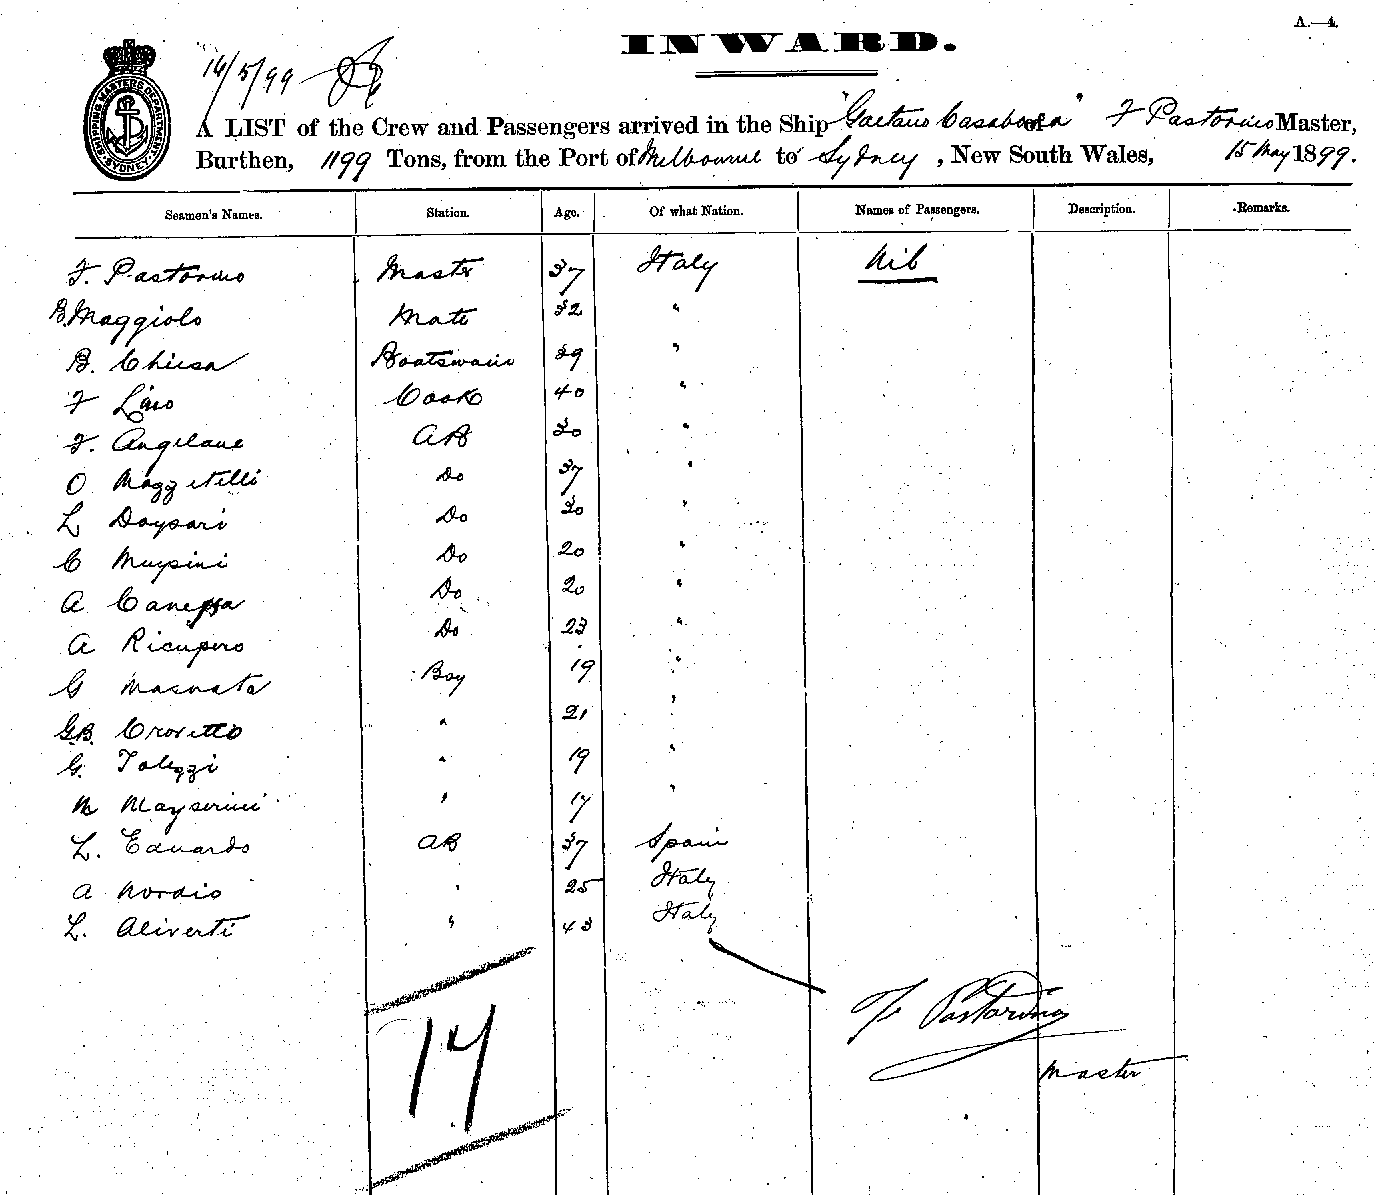 A.—4.
INWARD.
SHIPPING MASTERS DEPARTMENT SYDNEY
16/5/99
A LIST of the Crew and Passengers arrived in the Ship "Gaetano Casabona" of F Pastorino Master,
Burthen, 1199 Tons, from the Port of Melbourne to Sydney, New South Wales, 15 May 1899.
Seamen's Names. Station. Age. Of what Nation. Names of Passengers. Description. Remarks.
F. Pastorino Master 37 Italy Nil
B. Maggiolo Mate 32 "
B. Chiesa Boatswain 39 "
F Cook 40 "
F. Angelane AB 30 "
O Mazzitelli Do 37 "
L Do 30 "
C Do 20 "
A Canessa Do 20 "
A Ricupero Do 23 "
G Masnata Boy 19 "
G.B. Crovetto " 21 "
G. " 19 "
M " 17 "
L. Eduardo AB 37 Spain
A Nordio " 25 Italy
L. Aliverti " 43 Italy
17
F Pastorino
Master